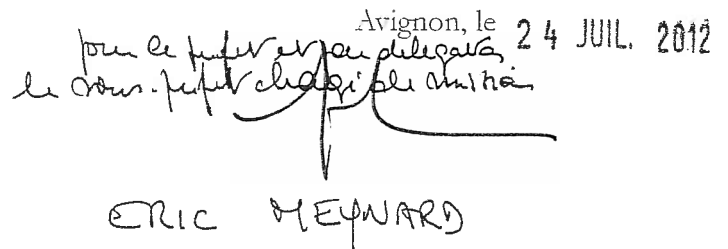 Avignon, le 24 JUIL. 2012
pour le préfet et par délégation
le sous-préfet chargé de mission
ERIC MEYNARD